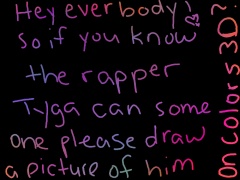 Hey everbody!
so if you know
the rapper
Tyga can some
one please draw
a picture of him
on Colors 3D?